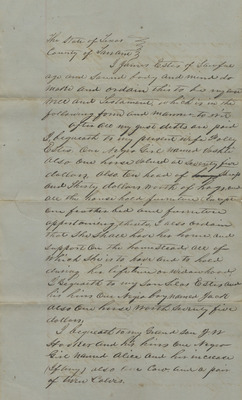 The State of Texas
County of Tarrant
I James Estes of
age and Sound body and mind do
make and ordain this to be my
Will and Testament, which is in the
following form and manner to wit
After all my just debts are paid
I bequeath to my present wife Polly
Estes One Negro Girl named
also one horse valued at Seventy five
dollars, also ten head of
and Thirty dollars worth of hogs, and
all the house hold furniture Except
one feather bed and furniture
appertaining thereto I also ordain
that She Shall have her home and
Support On the homestead all of
Which She is to have and to hold
during her lifetime or widowhood
I bequeath to my Son Elas Estes and
his heirs One Negro boy named Jack
also One horse Worth Seventy five
dollars,
I bequeath to my Grand Son J W
and his heirs One Negro
Girl named Alice and his increase
if any, also One Cow and a pair
of